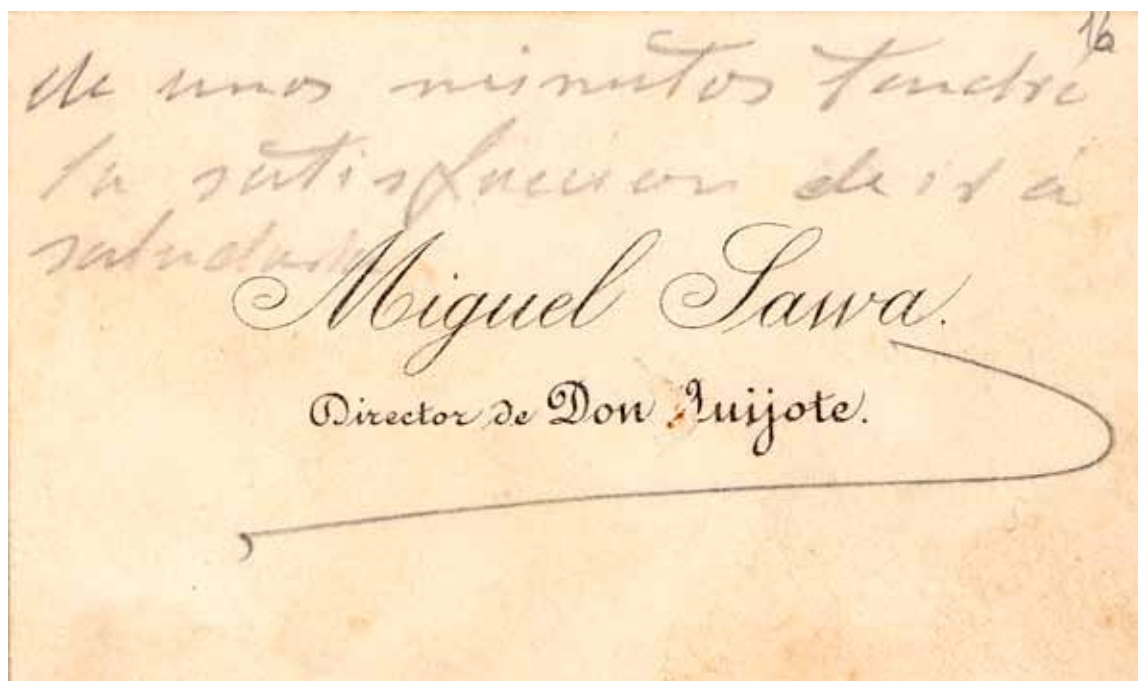 16
de unos minutos tendré
la satisfaccion de ir á
saludarle
Miguel Sawa.
Director de Don Quijote.